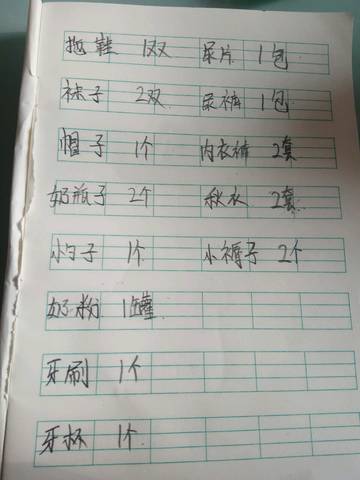 拖鞋 1双 尿片 1包
袜子 2双 尿裤 1包
帽子 1个 内衣裤 2套
奶瓶子 2个 秋衣 2套
小勺子 1个 小褥子 2个
奶粉 1罐
牙刷 1个
牙杯 1个